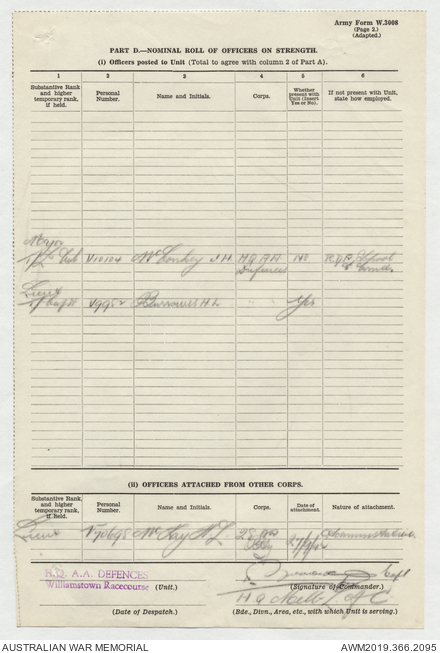 Army Form W.3008
(Page 2.)
(Adapted.)
PART D.—NOMINAL ROLL OF OFFICERS ON STRENGTH.
(i) Officers posted to Unit (Total to agree with column 2 of Part A).
1 2 3 4 5 6
Substantive Rank and higher temporary rank, if held.
Personal Number.
Name and Initials.
Corps.
Whether present with Unit (Insert Yes or No).
If not present with Unit, state how employed.
Major
T/Lt Col V10104 McConkey J H HQ AA No
Defences
Lieut
T/Capt Burrowes H L " " Yes
(ii) OFFICERS ATTACHED FROM OTHER CORPS.
Substantive Rank and higher temporary rank, if held.
Personal Number.
Name and Initials.
Corps.
Date of attachment.
Nature of attachment.
Lieut McKay
H.Q. A.A. DEFENCES
Williamstown Racecourse (Unit.)
Capt
(Signature of Commander.)
(Date of Despatch.)
(Bde., Divn., Area, etc., with which Unit is serving.)
AUSTRALIAN WAR MEMORIAL
AWM2019.366.2095